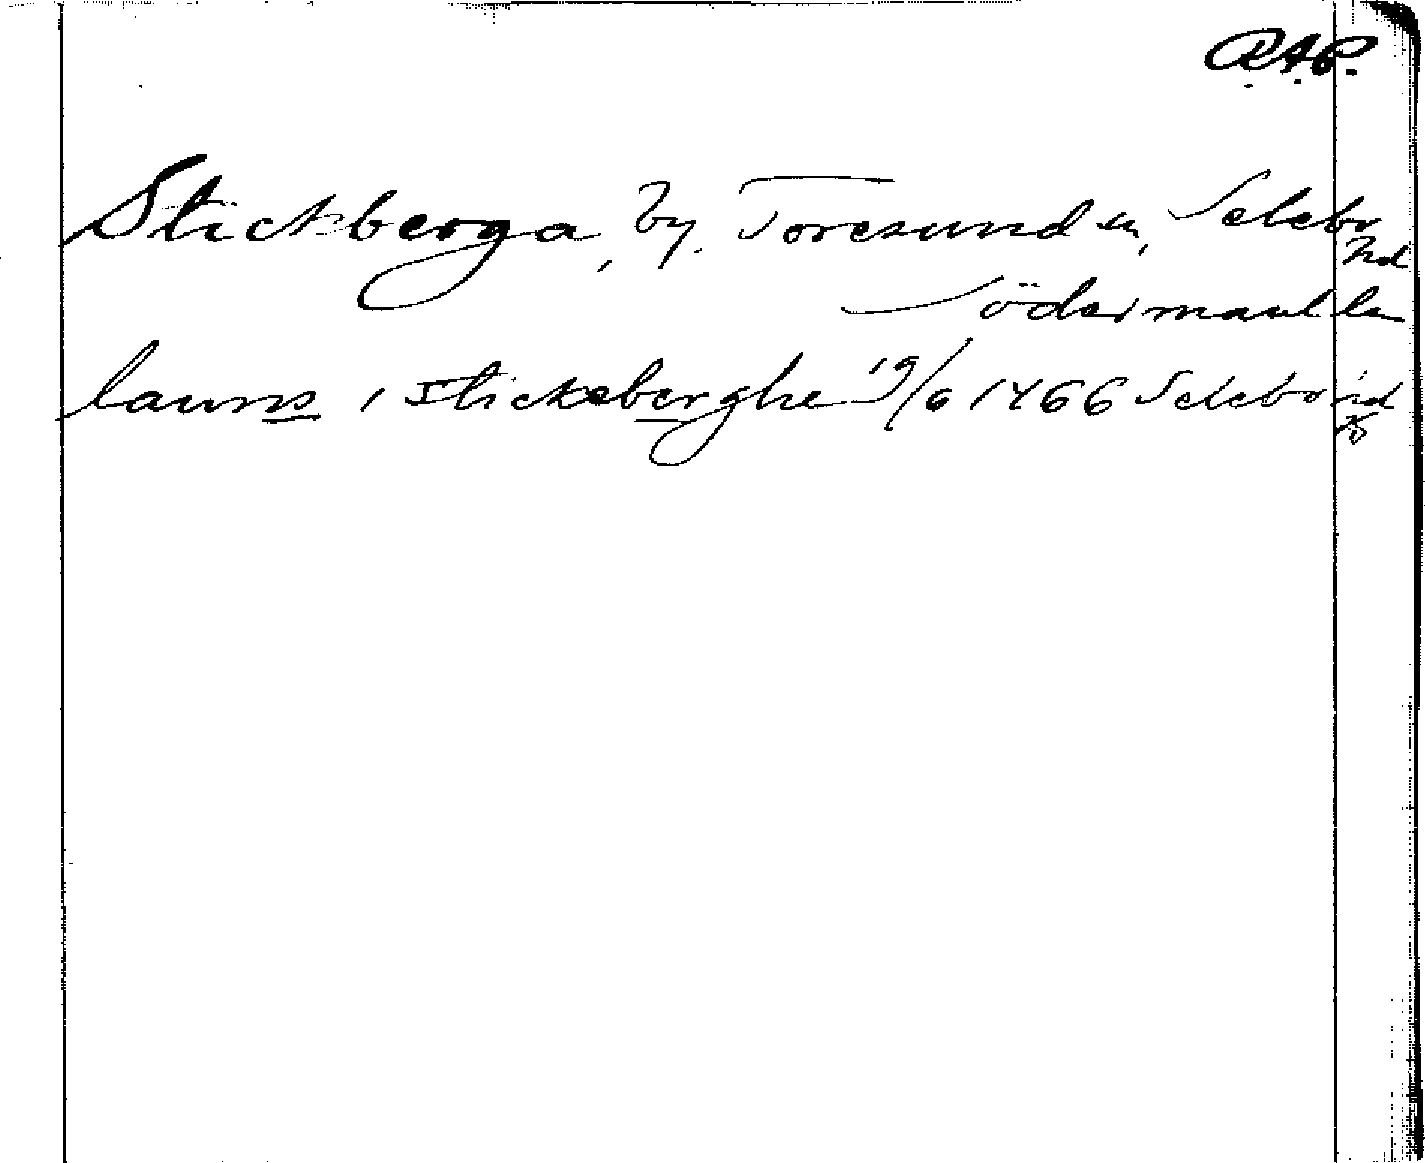 R.A.P.
Stickberga, by. Toresund sn, Selebo
hd
Södermanl län
laurns i stickeberghe 19/6 1466 Selebo hd